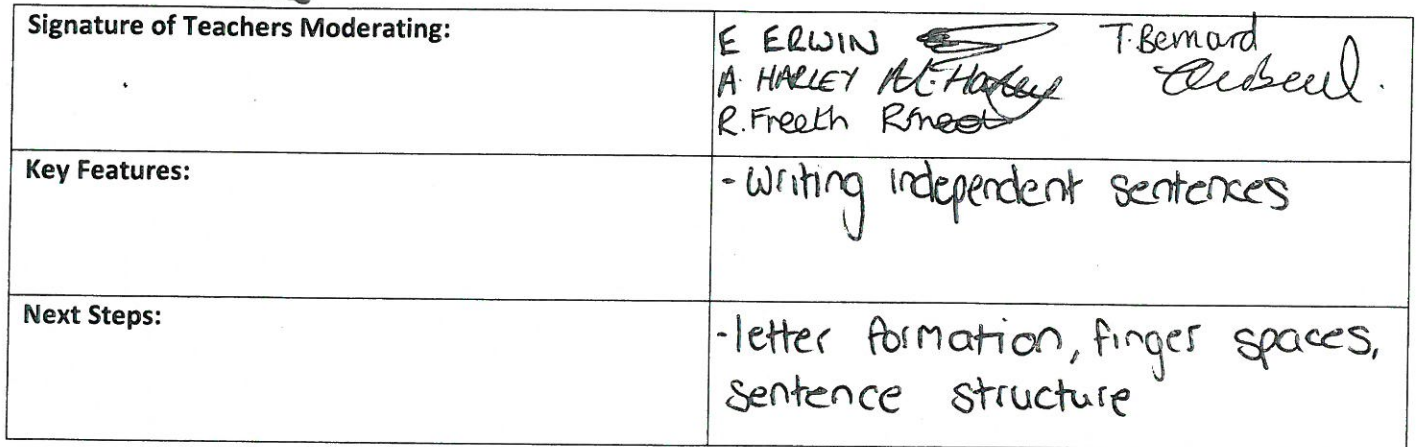 Signature of Teachers Moderating:
E ERWIN T.Bernard
A. HARLEY A.C.Harley
R.Freeth
Key Features:
-Writing independent sentences
Next Steps:
-letter formation, finger spaces,
sentence structure